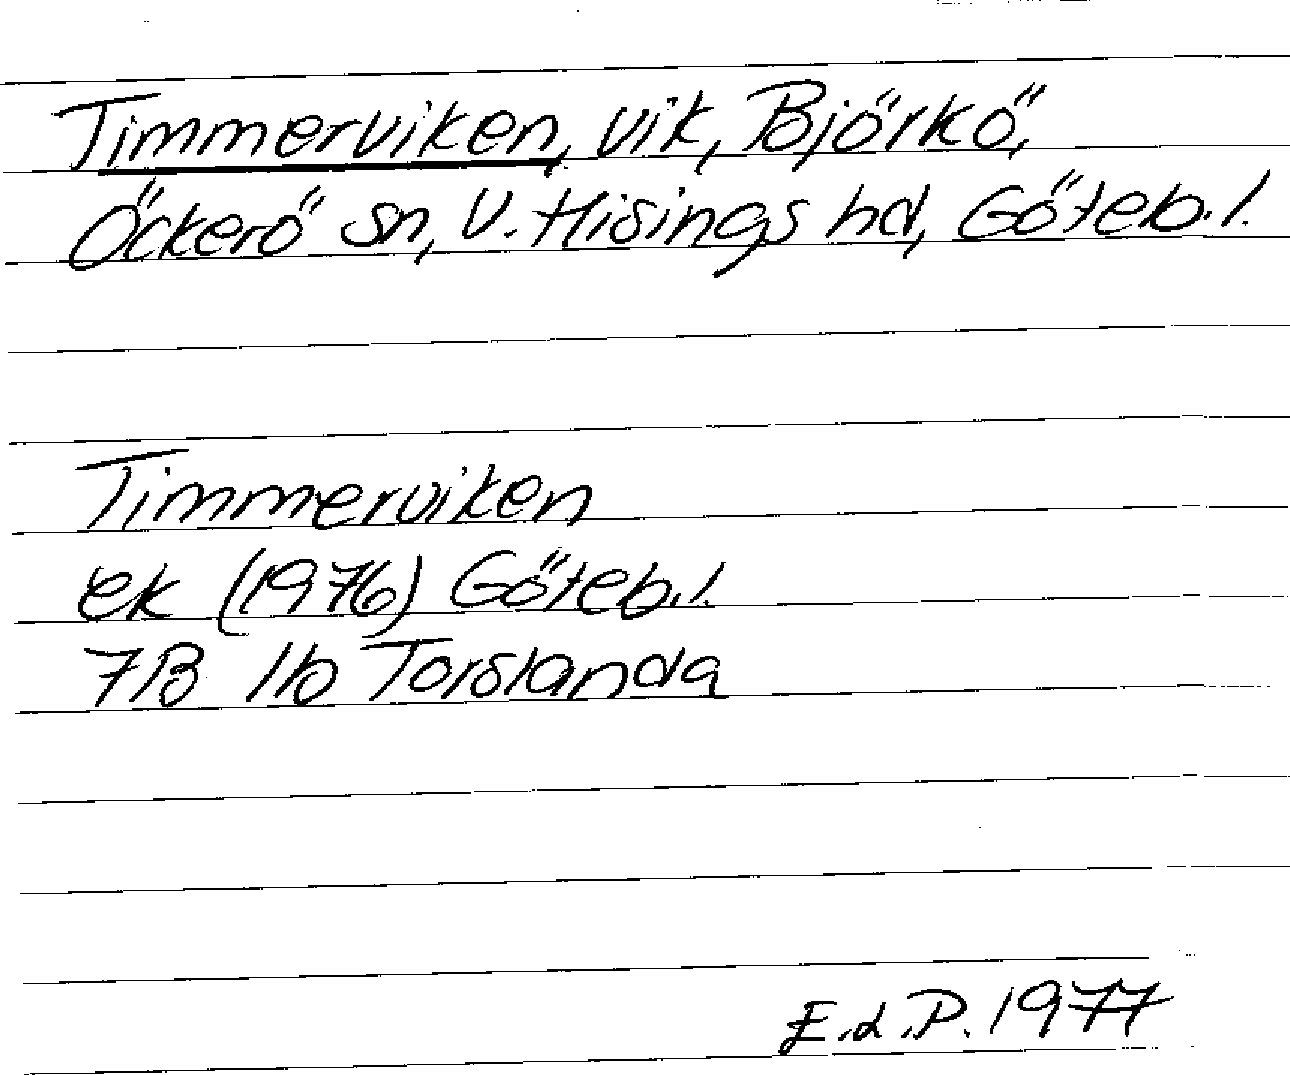 Timmerviken, vik, Björkö,
Öckerö sn, V. Hisings hd, Göteb. l.
Timmerviken
ek (1976) Göteb. l.
7B 1b Torslanda
E.d.P. 1977